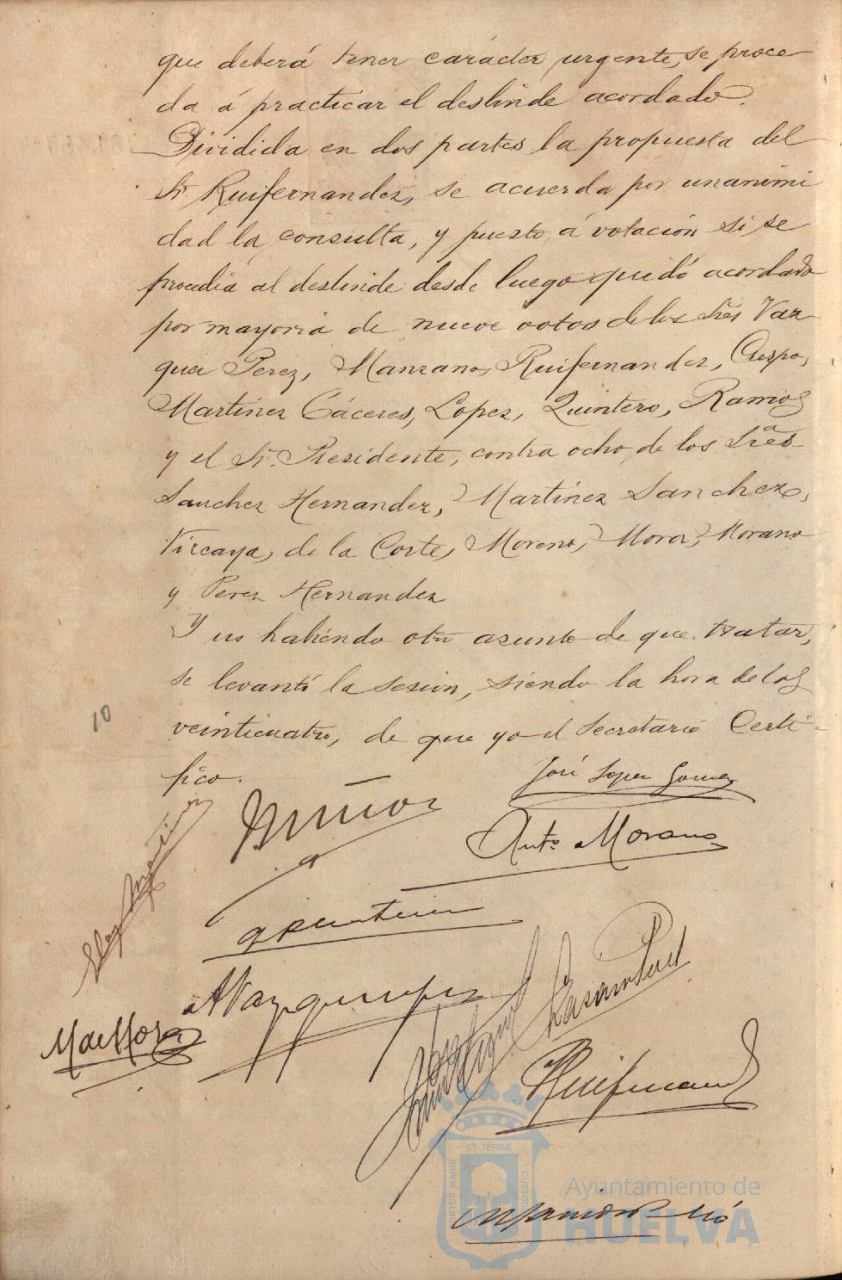 que deberá tener carácter urgente, se proce
da á practicar el deslinde acordado.
Dividida en dos partes la propuesta del
Sr. Ruifernandez, se acuerda por unanimi
dad la consulta, y puesto á votación si se
procedia al deslinde desde luego quedó acordado
por mayoria de nueve votos de los Sres Vaz
quez Perez, Manzano, Ruifernandez, Crespo,
Martinez Cáceres, Lopez, Quintero, Ramos
y el Sr. Presidente, contra ocho de los Sres
Sanchez Hernandez, Martinez Sanchez,
Vizcaya, de la Corte, Moreno, Mora, Morano
y Perez Hernandez
Y no habiendo otro asunto de que tratar,
se levantó la sesion, siendo la hora de las
veinticuatro, de que yo el Secretario Certi-
fico.
10
José Lopez Gomez
Muñoz
Antº Morano
Eloy Martinez
A Vazquez Perez
M de Mora
Ruifernandez
PORTUS MARIS
ET TERRÆ
CUSTODIA
Ayuntamiento de
HUELVA